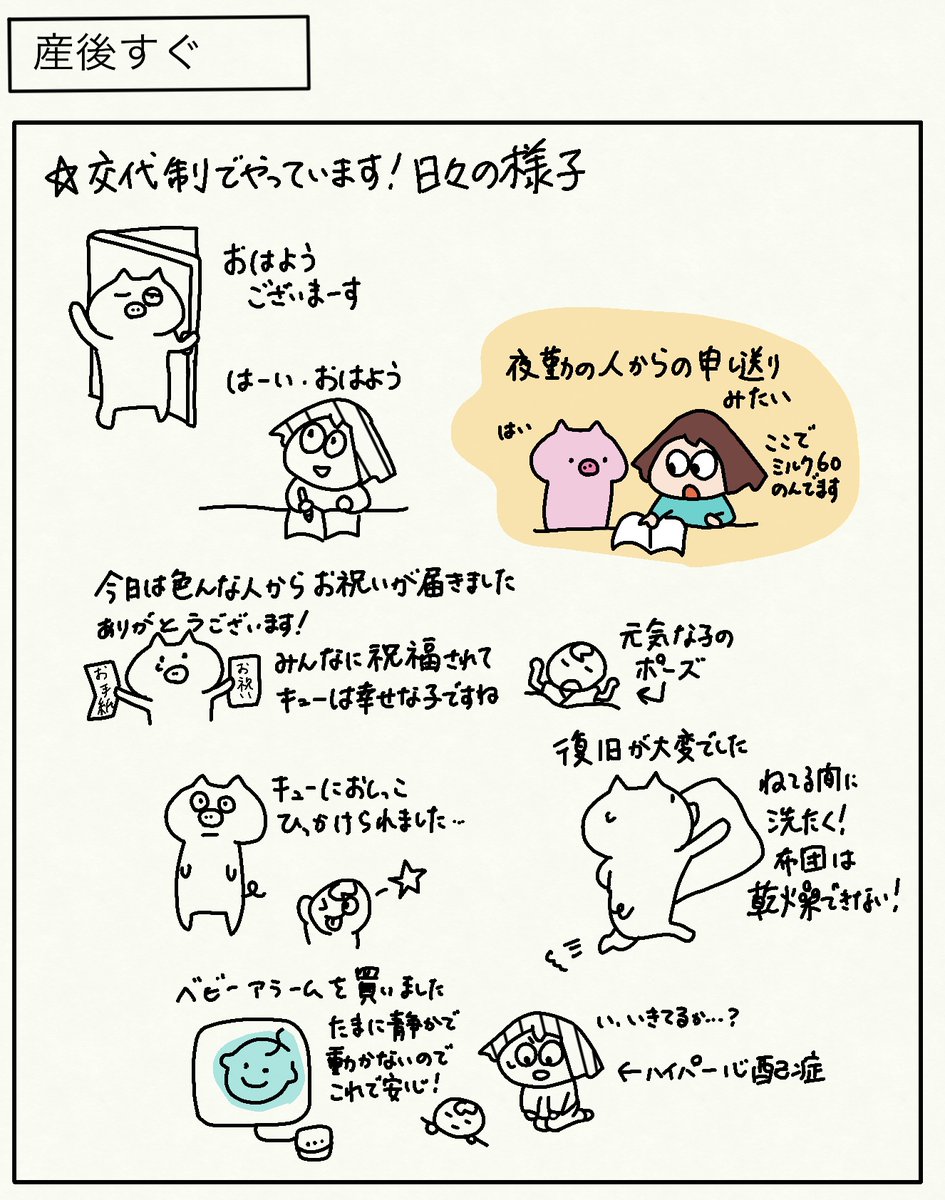 産後すぐ
☆交代制でやっています!日々の様子
おはよう
ございまーす
はーい.おはよう
夜勤の人からの申し送り
みたい
はい
ここで
ミルク60
のんでます
今日は色んな人からお祝いが届きました
ありがとうございます!
お手紙
お祝い
みんなに祝福されて
キューは幸せな子ですね
元気な子の
ポーズ
キューにおしっこ
ひっかけられました…
復旧が大変でした
ねてる間に
洗たく!
布団は
乾燥できない!
ベビーアラームを買いました
たまに静かで
動かないので
これで安心!
い、いきてるか…?
←ハイパー心配症